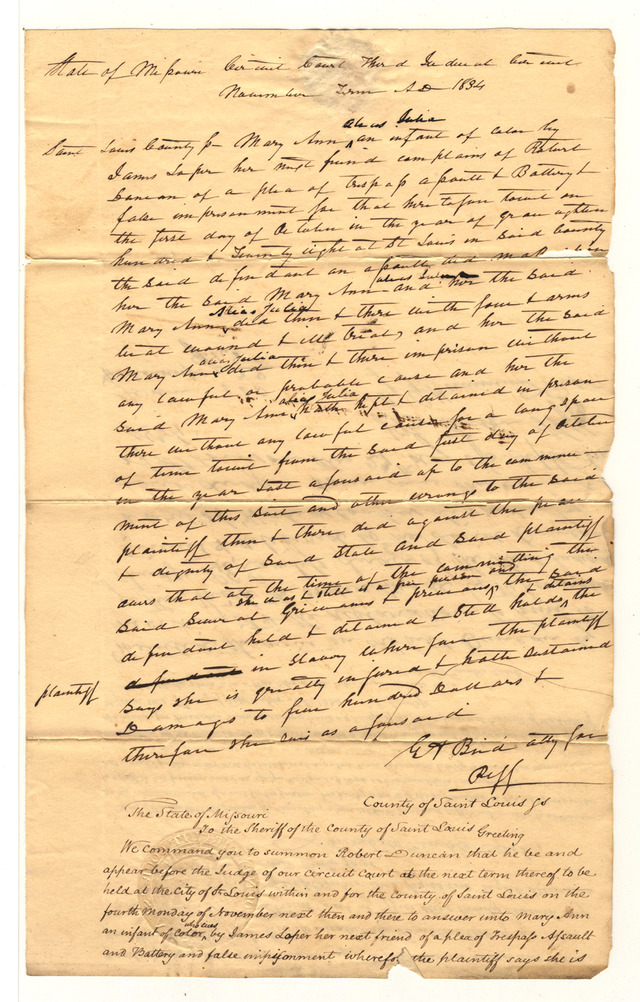 State of Missouri Circuit Court Third Judicial Circuit
November Term AD 1834
alias Julia
Saint Louis County ss Mary Ann ^ an infant of color by
James Loper her next friend complains of Robert
Duncan of a plea of trespass assault & Battery &
false imprisonment for that heretofore towit on
the first day of October in the year of grace eighteen
hundred & Twenty eight at St Louis in Said County
the Said defendant an assault did make upon
alias Julia
her the Said Mary Ann and her the Said
alias Julia
Mary Ann ^ did then & there with force & arms
beat wound & ill treat, and her the Said
alias Julia
Mary Ann ^ did then & there imprison without
any lawful or probable cause and her the
alias Julia
Said Mary Ann ^ hath kept & detained in prison
there without any lawful cause for a long space
of time towit from the Said first day of October
in the year last aforesaid up to the commence-
ment of this Suit and other wrongs to the Said
plaintiff then & there did against the peace
& dignity of Said State and Said plaintiff
avers that at the time of the committing the
she was & still is a free person and
Said Several Grievances & previous, the Said
& detains
defendant held & detained & Still holds ^ the
plaintiff
defendant in Slavery wherefore the plaintiff
Says she is greatly injured & hath Sustained
Damage to five hundred Dollars &
therefore she sues as aforesaid
G A Bird atty for
Plff
County of Saint Louis ss
The State of Missouri
To the Sheriff of the County of Saint Louis Greeting
We command you to summon Robert Duncan that he be and
appear before the Judge of our Circuit Court at the next term thereof to be
held at the City of St Louis within and for the county of Saint Louis on the
fourth Monday of November next then and there to answer unto Mary Ann
who sues
an infant of Color, ^ by James Loper her next friend of a plea of Trespass Assault
and Battery and false imprisonment wherefor the plaintiff says she is